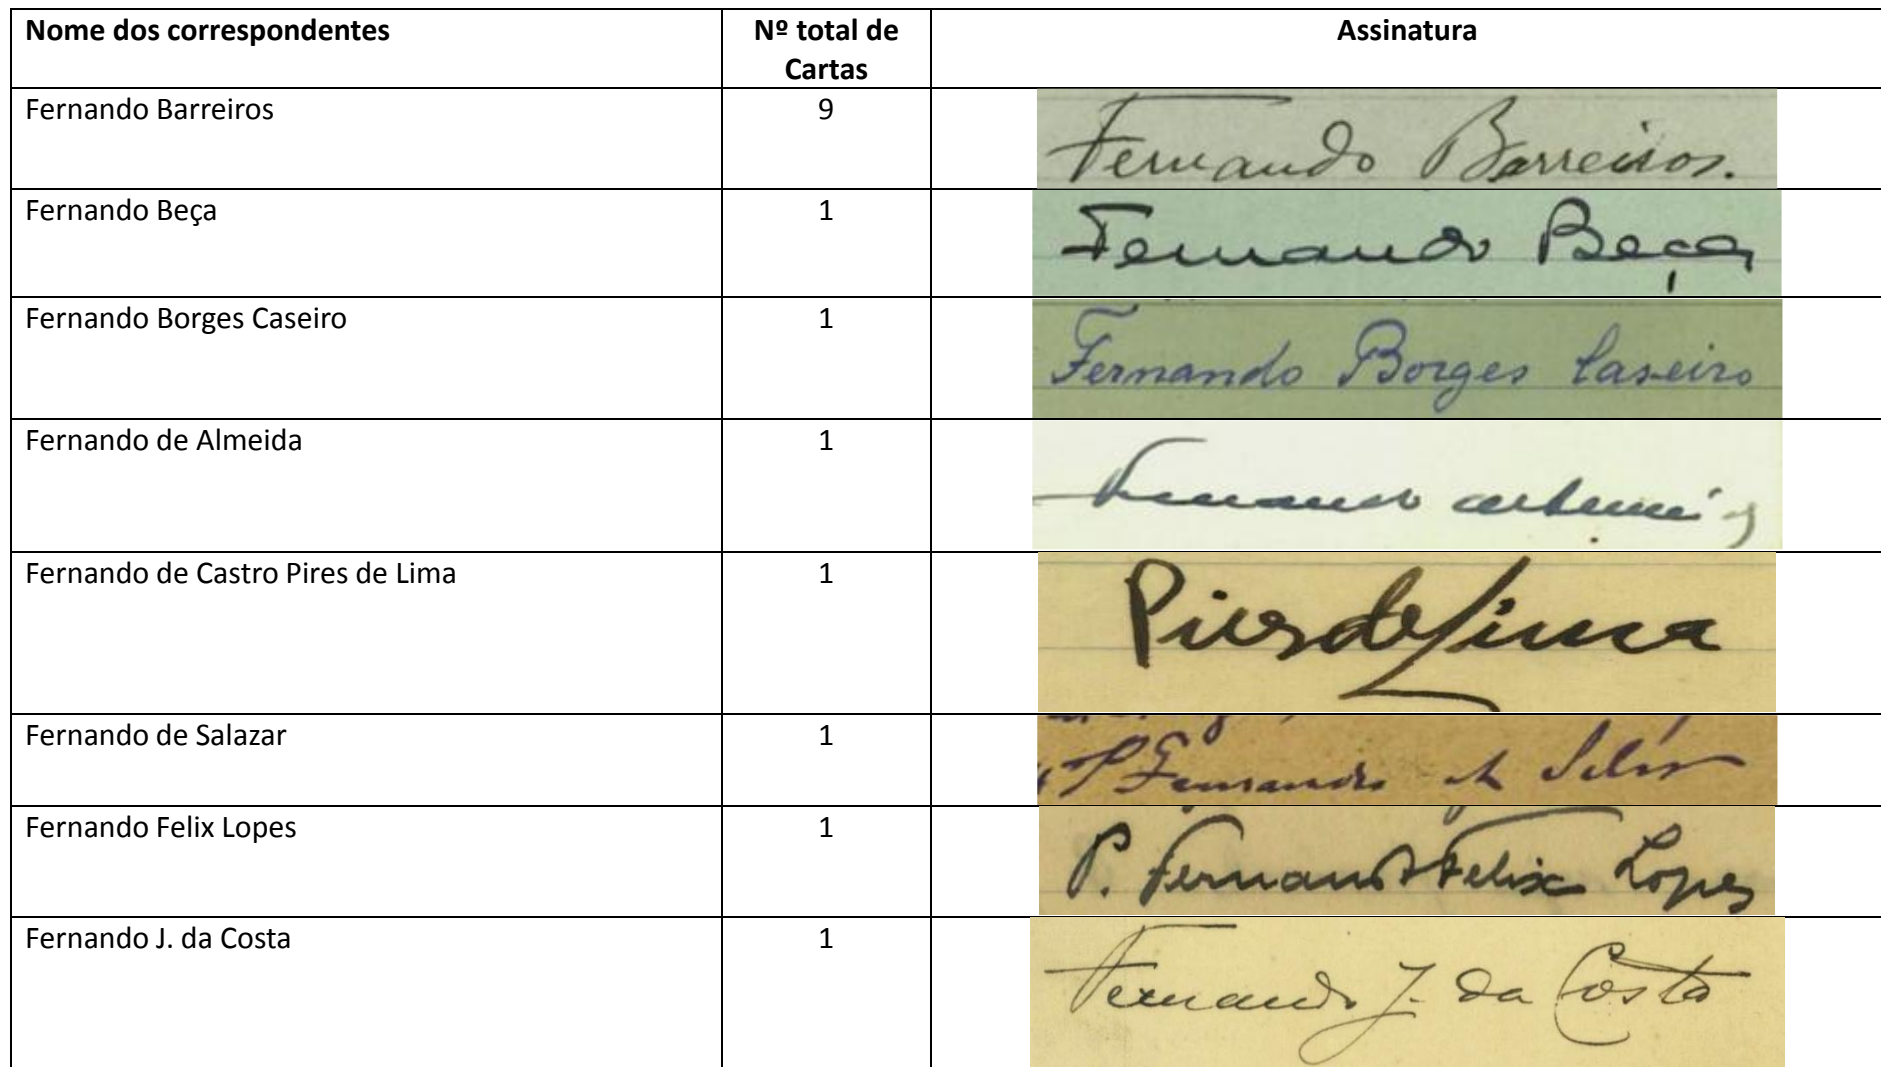 Nome dos correspondentes
Nº total de
Cartas
Assinatura
Fernando Barreiros
9
Fernando Barreiros.
Fernando Beça
1
Fernando Beça
Fernando Borges Caseiro
1
Fernando Borges Caseiro
Fernando de Almeida
1
Fernando
Fernando de Castro Pires de Lima
1
Pires de Lima
Fernando de Salazar
1
Fernando
Fernando Felix Lopes
1
P. Fernando Felix Lopes
Fernando J. da Costa
1
Fernando J. da Costa